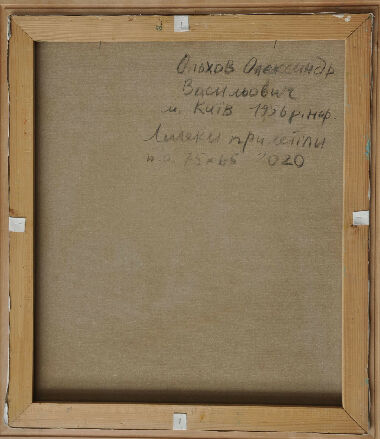 Ольхов Олександр
Васильович
м. Київ 1956 р.нар.
Лелеки прилетіли
п.о. 75×65 2020